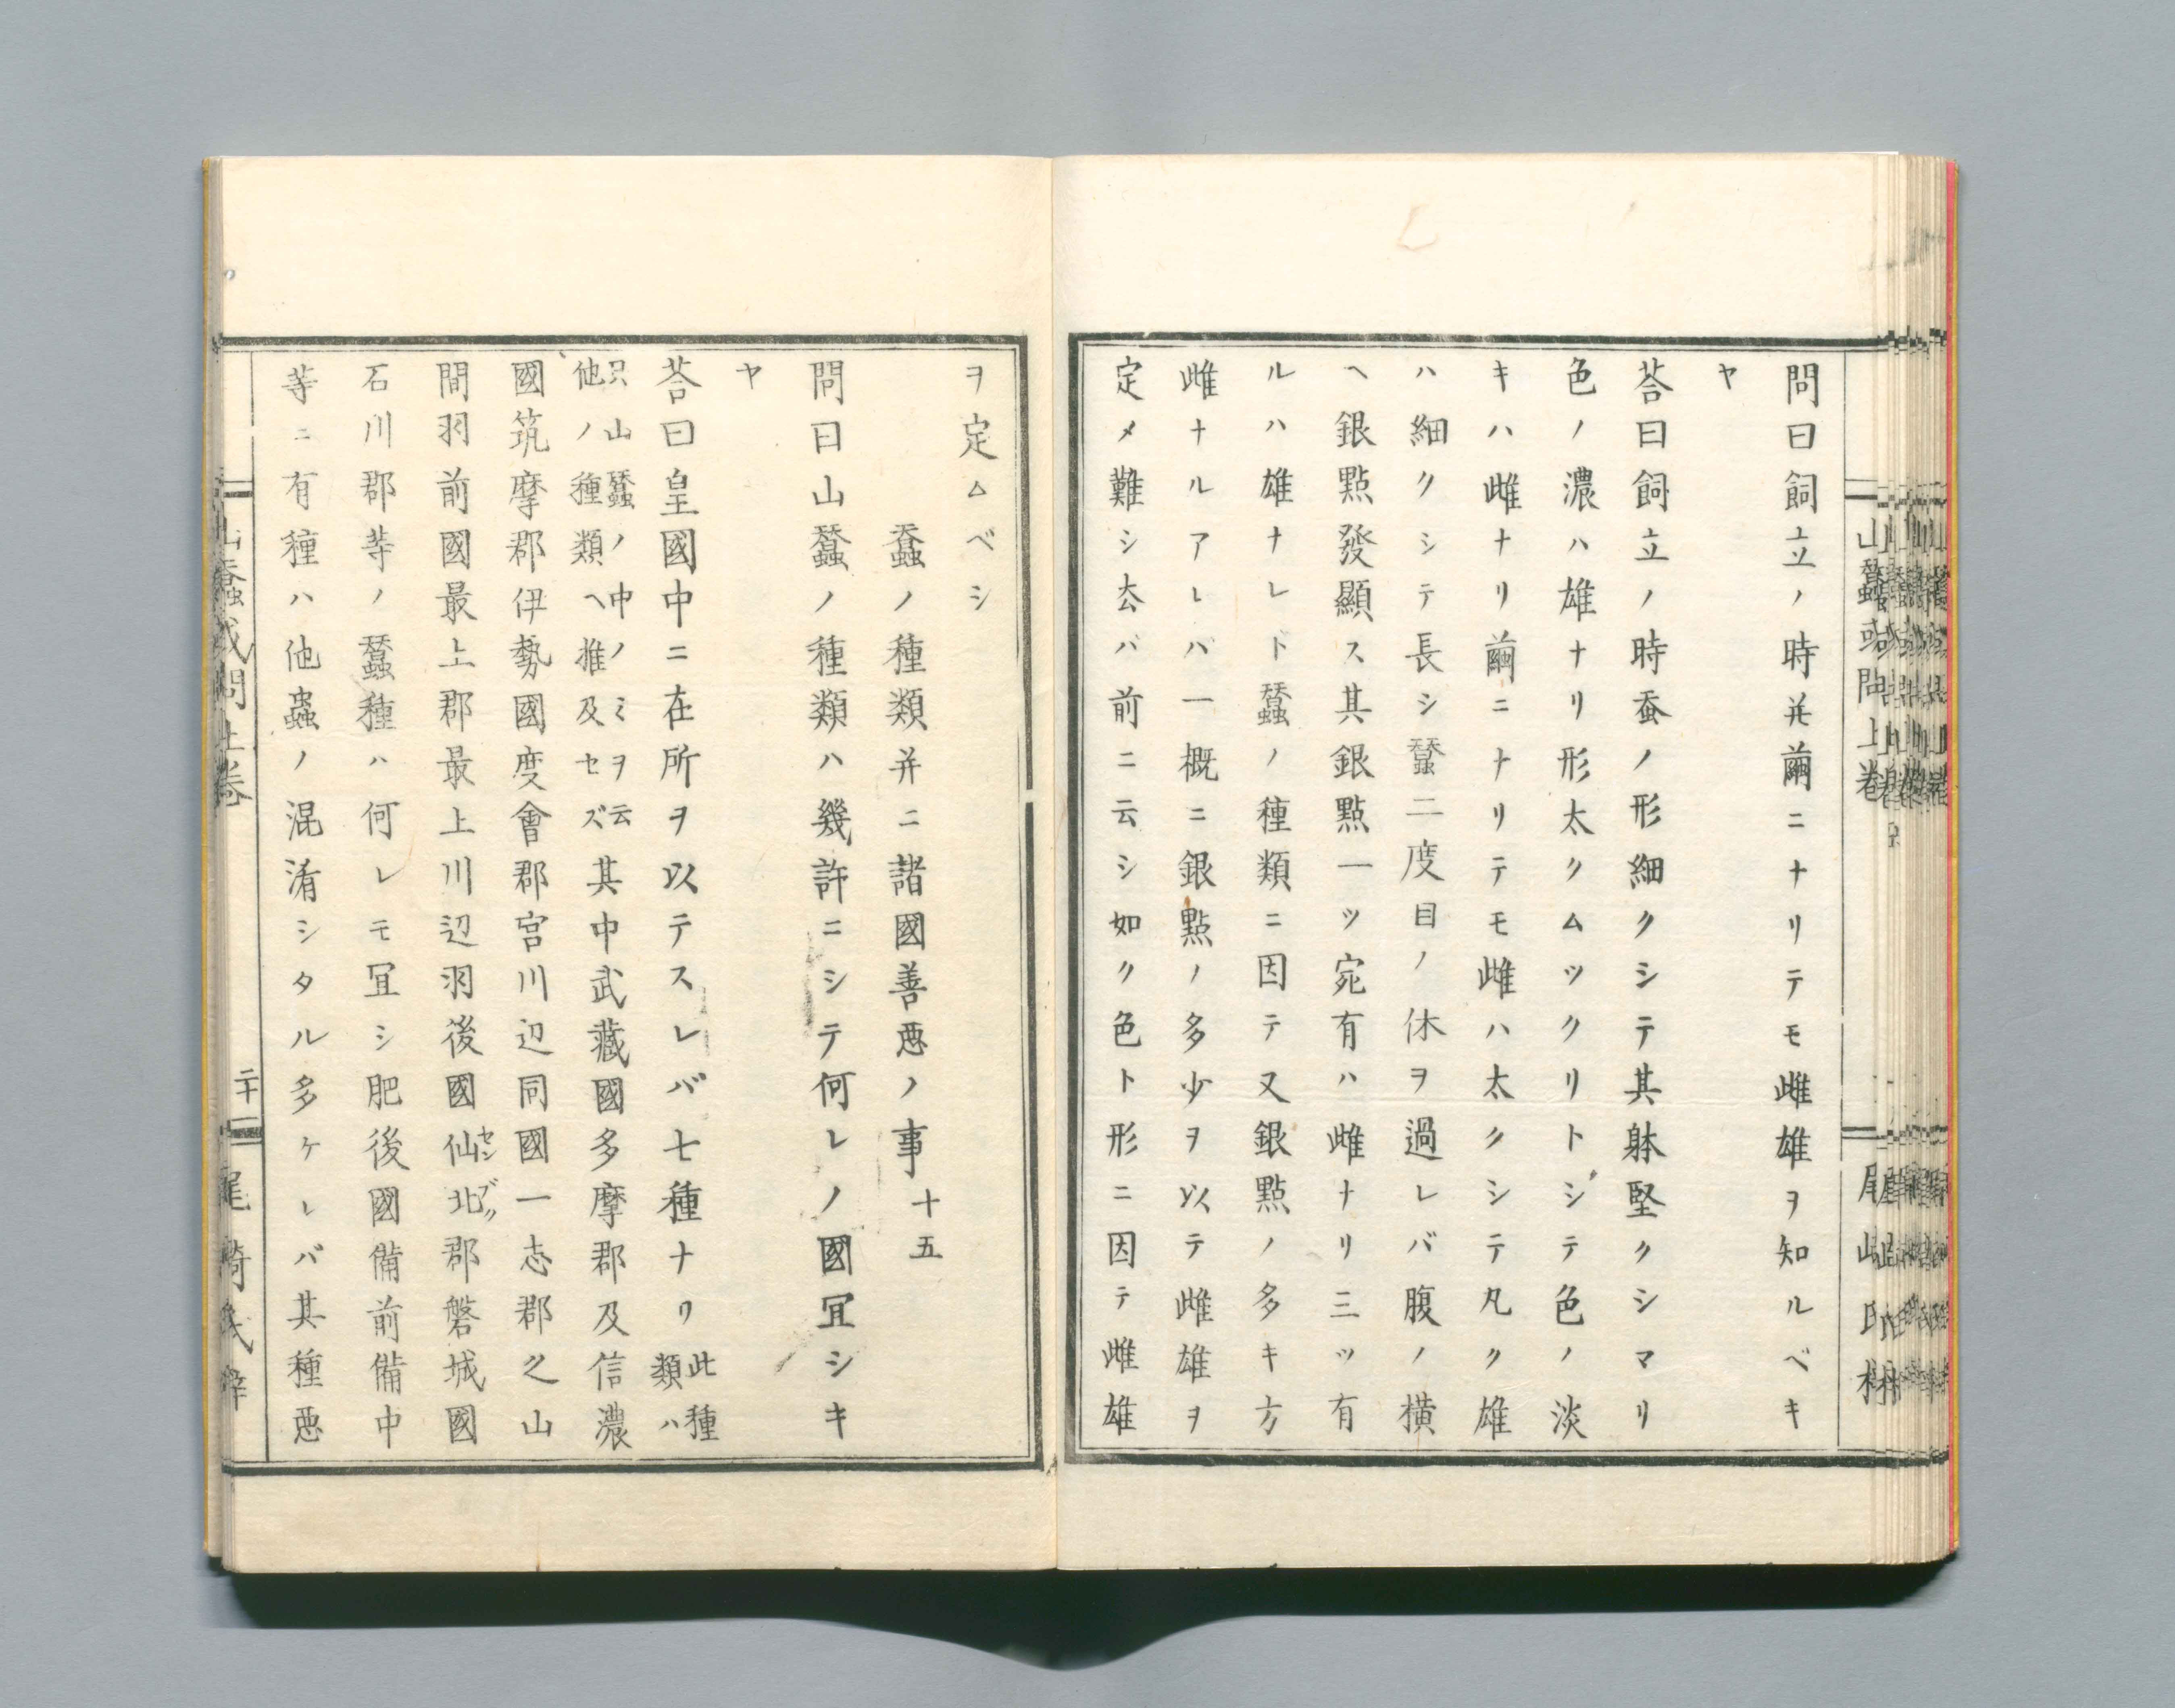 問曰飼立ノ時并繭ニナリテモ雌雄ヲ知ルベキ
ヤ
荅曰飼立ノ時蚕ノ形細クシテ其躰堅クシマリ
色ノ濃ハ雄ナリ形太クムツクリトシテ色ノ淡
キハ雌ナリ繭ニナリテモ雌ハ太クシテ凡ク雄
ハ細クシテ長シ蠶二度目ノ休ヲ過レバ腹ノ横
ヘ銀點發顯ス其銀點一ツ宛有ハ雌ナリ三ツ有
ルハ雄ナレド蠶ノ種類ニ因テ又銀點ノ多キ方
雌ナルアレバ一概ニ銀點ノ多少ヲ以テ雌雄ヲ
定メ難シ厺バ前ニ云シ如ク色ト形ニ因テ雌雄
ヲ定ムベシ
蝅ノ種類并ニ諸國善惡ノ事 十五
問曰山蠶ノ種類ハ幾許ニシテ何レノ國冝シキ
ヤ
荅曰皇國中ニ在所ヲ以テスレバ七種ナリ此種類ハ
只山蠶ノ中ノミヲ云他ノ種類ヘ推及セズ其中武藏國多摩郡及信濃
國筑摩郡伊勢國度會郡宮川辺同國一志郡之山
間羽前國最上郡最上川辺羽後國仙北郡磐城國
センブク
石川郡等ノ蠶種ハ何レモ冝シ肥後國備前備中
等ニ有種ハ他蟲ノ混淆シタル多ケレバ其種惡
山蠶或問上卷
二十